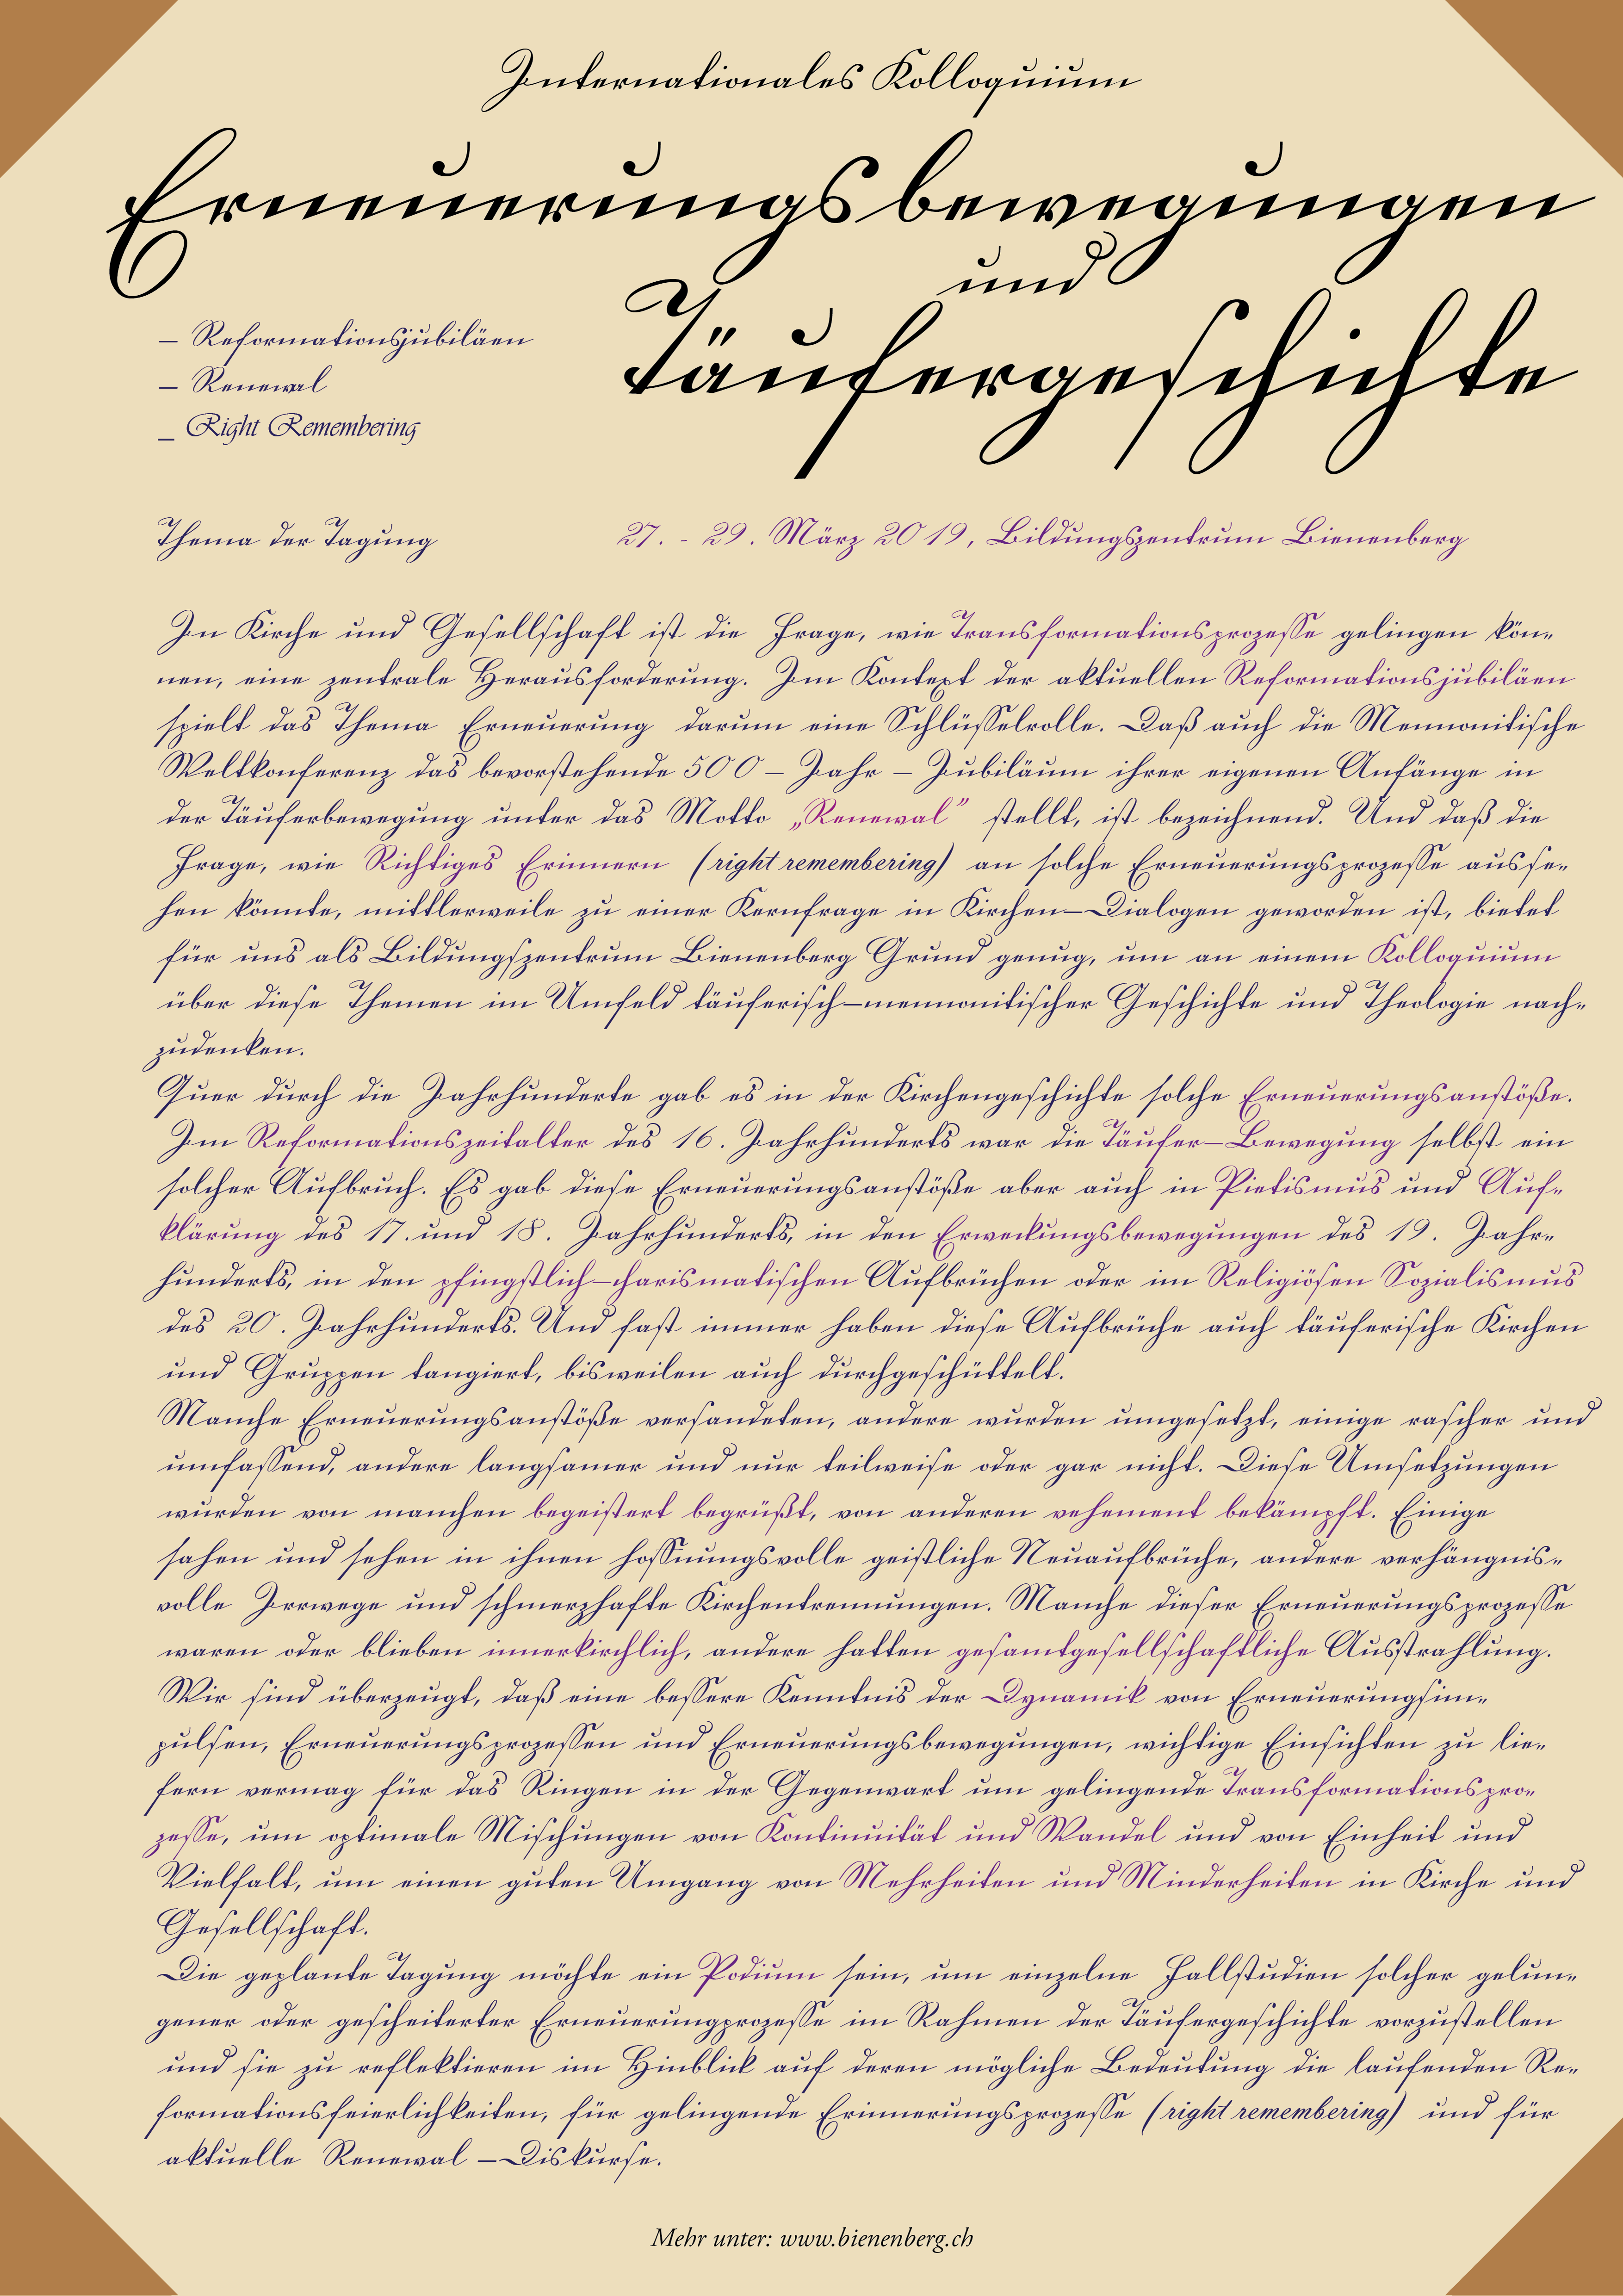 Internationales Kolloquium
Erneuerungsbewegungen
und
Täufergeschichte
– Reformationsjubiläen
– Renewal
_ Right Remembering
Thema der Tagung
27. - 29. März 2019, Bildungszentrum Bienenberg
In Kirche und Gesellschaft ist die Frage, wie Transformationsprozesse gelingen kön-
nen, eine zentrale Herausforderung. Im Kontext der aktuellen Reformationsjubiläen
spielt das Thema Erneuerung darum eine Schlüsselrolle. Daß auch die Mennonitische
Weltkonferenz das bevorstehende 500 – Jahr – Jubiläum ihrer eigenen Anfänge in
der Täuferbewegung unter das Motto „Renewal” stellt, ist bezeichnend. Und daß die
Frage, wie Richtiges Erinnern (right remembering) an solche Erneuerungsprozesse ausse-
hen könnte, mittlerweile zu einer Kernfrage in Kirchen–Dialogen geworden ist, bietet
für uns als Bildungszentrum Bienenberg Grund genug, um an einem Kolloquium
über diese Themen im Umfeld täuferisch–mennonitischer Geschichte und Theologie nach-
zudenken.
Quer durch die Jahrhunderte gab es in der Kirchengeschichte solche Erneuerungsanstöße.
Im Reformationszeitalter des 16. Jahrhunderts war die Täufer–Bewegung selbst ein
solcher Aufbruch. Es gab diese Erneuerungsanstöße aber auch in Pietismus und Auf-
klärung des 17. und 18. Jahrhunderts, in den Erweckungsbewegungen des 19. Jahr-
hunderts, in den pfingstlich–charismatischen Aufbrüchen oder im Religiösen Sozialismus
des 20. Jahrhunderts. Und fast immer haben diese Aufbrüche auch täuferische Kirchen
und Gruppen tangiert, bisweilen auch durchgeschüttelt.
Manche Erneuerungsanstöße versandeten, andere wurden umgesetzt, einige rascher und
umfassend, andere langsamer und nur teilweise oder gar nicht. Diese Umsetzungen
wurden von manchen begeistert begrüßt, von anderen vehement bekämpft. Einige
sahen und sehen in ihnen hoffnungsvolle geistliche Neuaufbrüche, andere verhängnis-
volle Irrwege und schmerzhafte Kirchentrennungen. Manche dieser Erneuerungsprozesse
waren oder blieben innerkirchlich, andere hatten gesamtgesellschaftliche Ausstrahlung.
Wir sind überzeugt, daß eine bessere Kenntnis der Dynamik von Erneuerungsim-
pulsen, Erneuerungsprozessen und Erneuerungsbewegungen, wichtige Einsichten zu lie-
fern vermag für das Ringen in der Gegenwart um gelingende Transformationspro-
zesse, um optimale Mischungen von Kontinuität und Wandel und von Einheit und
Vielfalt, um einen guten Umgang von Mehrheiten und Minderheiten in Kirche und
Gesellschaft.
Die geplante Tagung möchte ein Podium sein, um einzelne Fallstudien solcher gelun-
gener oder gescheiterter Erneuerungprozesse im Rahmen der Täufergeschichte vorzustellen
und sie zu reflektieren im Hinblick auf deren mögliche Bedeutung die laufenden Re-
formationsfeierlichkeiten, für gelingende Erinnerungsprozesse (right remembering) und für
aktuelle Renewal –Diskurse.
Mehr unter: www.bienenberg.ch